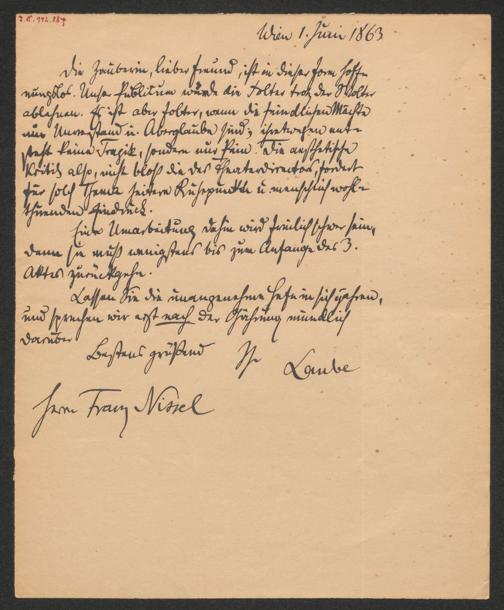 Wien 1. Juni 1863
Die Zauberin, lieber Freund, ist in dieser Form hoff-
nungslos. Unser Publikum würde die Folter trotz der Wolter
ablehnen. Es ist aber Folter, wenn die feindlichen Mächte
nur Unverstand u. Aberglaube sind; ihretwegen ent-
steht keine Tragik, sondern nur Pein. Die aesthetische
Kritik also, nicht bloß die des Theaterdirectors, fordert
für solch Thema heitere Ruhepunkte u menschlich wohl-
thuenden Eindruck.
Eine Umarbeitung dahin wird freilich schwer sein,
denn sie muß wenigstens bis zum Anfange des 3.
Aktes zurückgehn.
Lassen Sie die unangenehme Hefe in sich gähren,
und sprechen wir erst nach der Gährung mündlich
darüber
Bestens grüßend Ihr
Laube
Herrn Franz Nissel